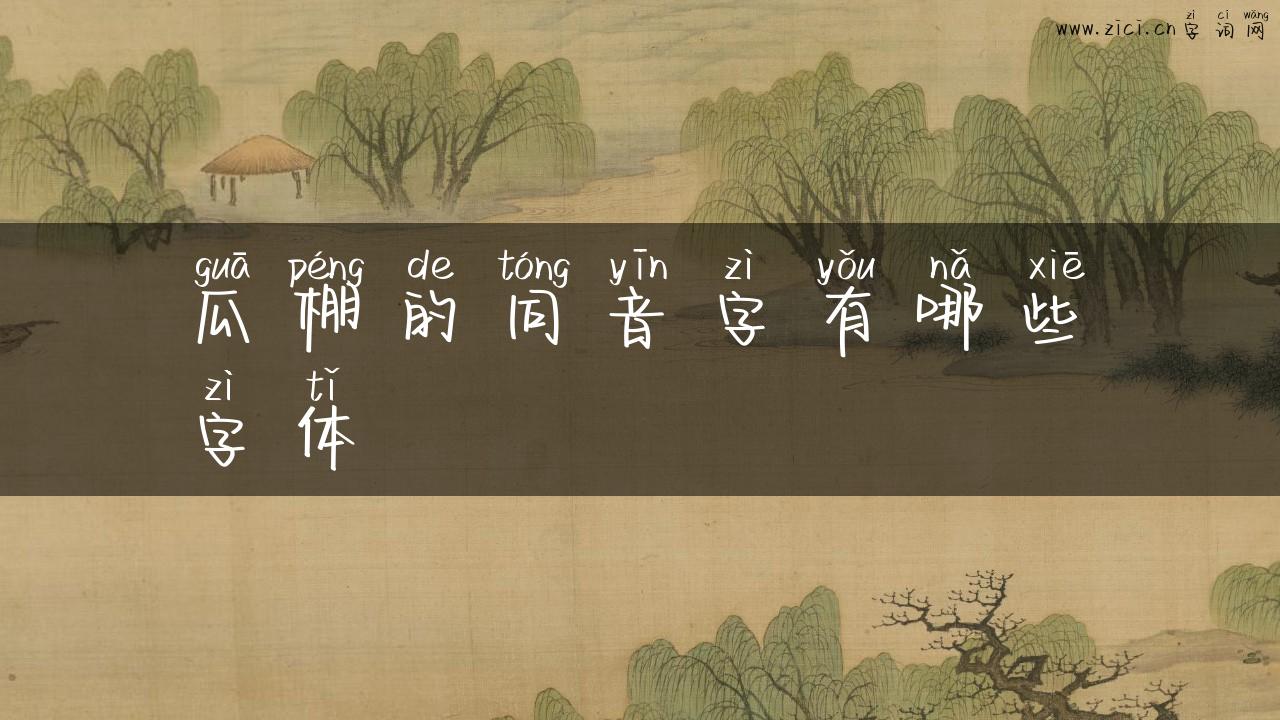 zì cí wǎng
www.zici.cn 字 词 网
guā péng de tóng yīn zì yǒu nǎ xiē
瓜 棚 的 同 音 字 有 哪 些
zì tǐ
字 体